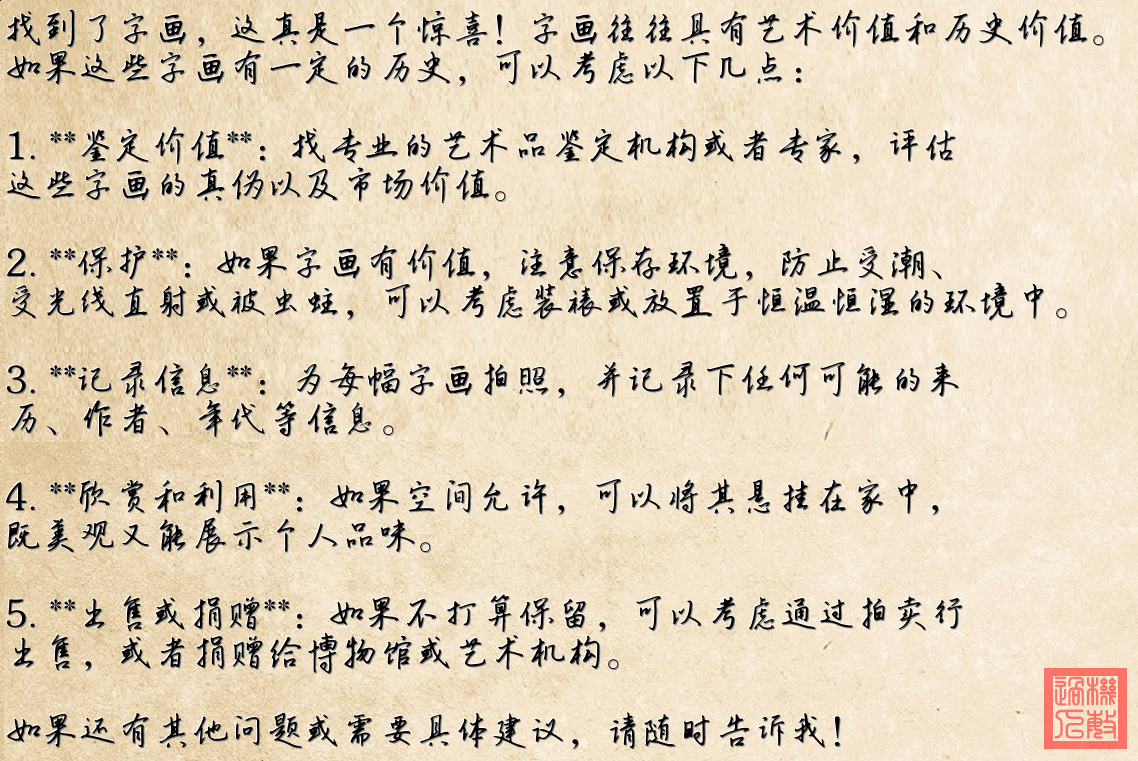 找到了字画，这真是一个惊喜！字画往往具有艺术价值和历史价值。
如果这些字画有一定的历史，可以考虑以下几点：
1. **鉴定价值**：找专业的艺术品鉴定机构或者专家，评估
这些字画的真伪以及市场价值。
2. **保护**：如果字画有价值，注意保存环境，防止受潮、
受光线直射或被虫蛀，可以考虑装裱或放置于恒温恒湿的环境中。
3. **记录信息**：为每幅字画拍照，并记录下任何可能的来
历、作者、年代等信息。
4. **欣赏和利用**：如果空间允许，可以将其悬挂在家中，
既美观又能展示个人品味。
5. **出售或捐赠**：如果不打算保留，可以考虑通过拍卖行
出售，或者捐赠给博物馆或艺术机构。
如果还有其他问题或需要具体建议，请随时告诉我！